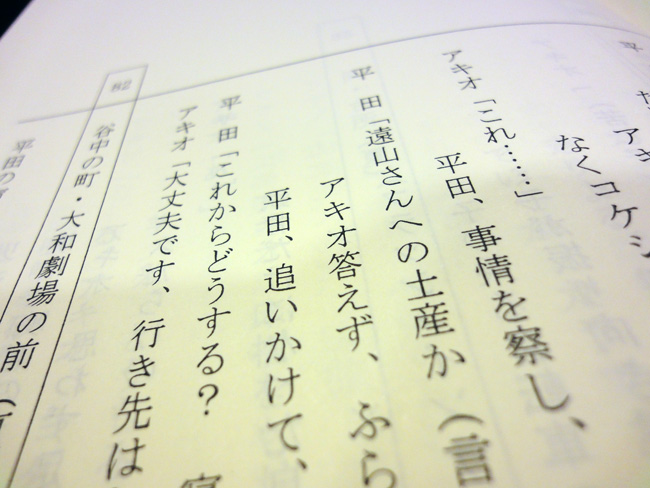 なくコケシ
アキオ「これ……」
平田、事情を察し、
平 田「遠山さんへの土産か(言
アキオ答えず、ふら
平田、追いかけて、
平 田「これからどうする?
アキオ「大丈夫です、行き先は
82
谷中の町・大和劇場の前(
平田の